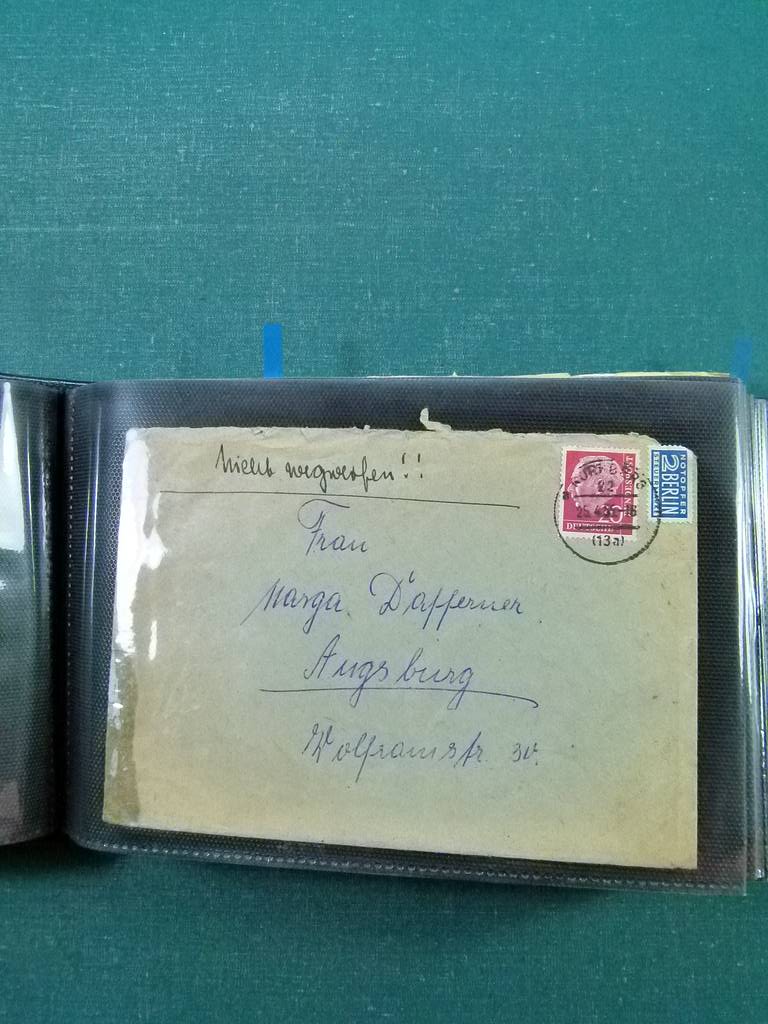 Nicht wegwerfen!!
Frau
Marga Dafferner
Augsburg
Wolframstr. 30.
DEUTSCHE
BUNDESPOST
20
22
25.4.
(13a)
NOTOPFER
2 BERLIN
STEUERMARKE